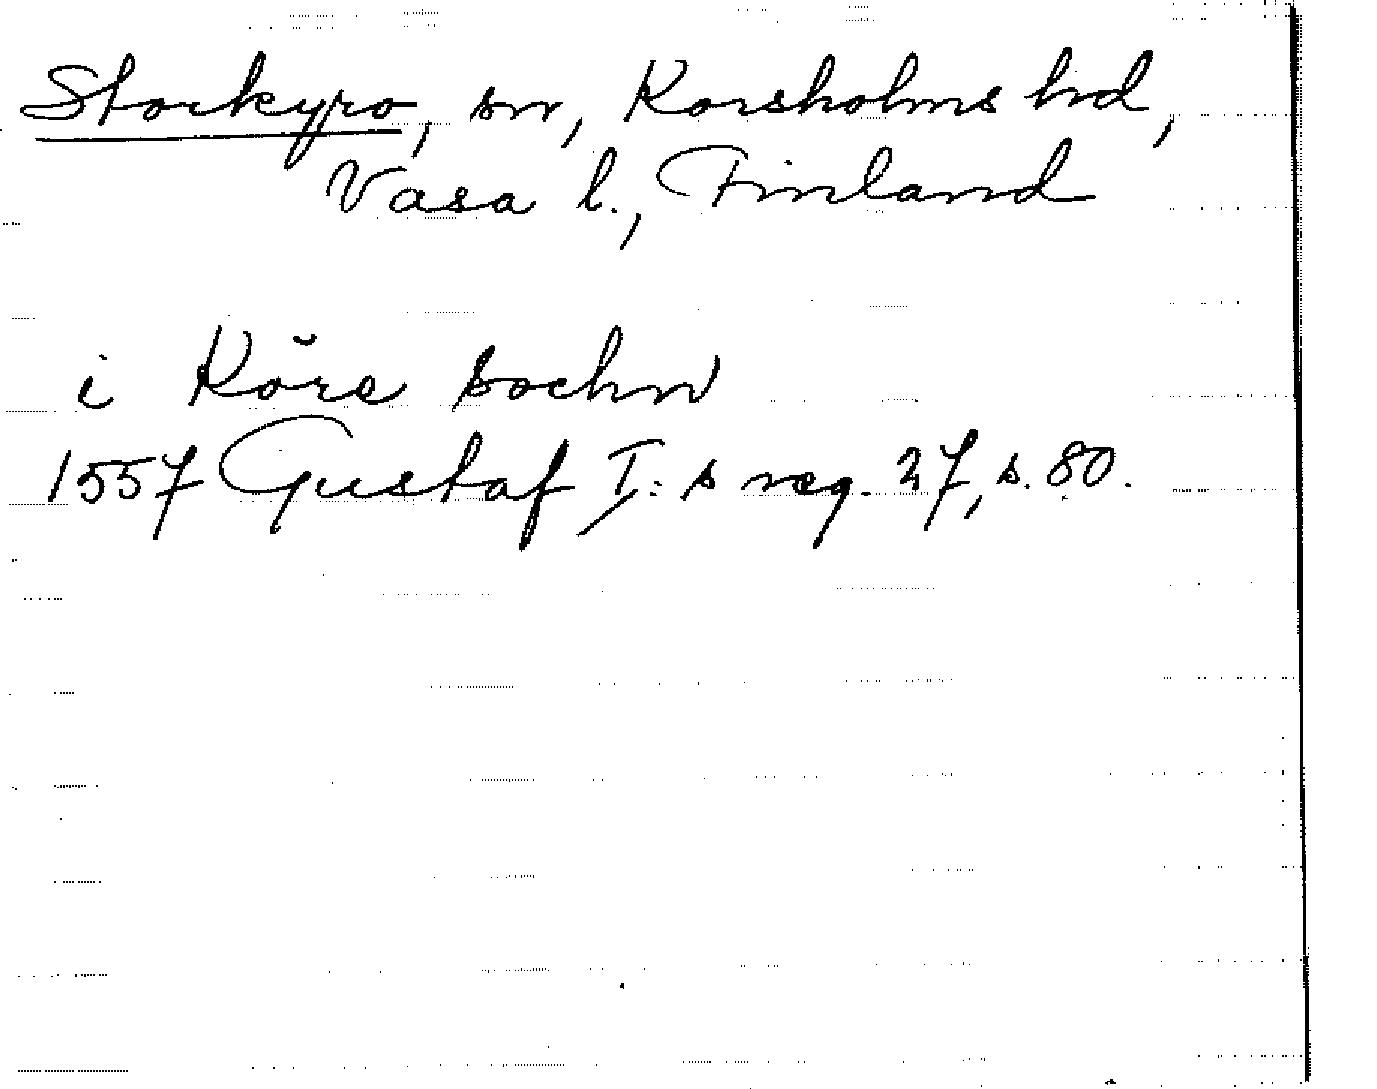 Storkyro, sn, Korsholms hd,
Vasa l., Finland
i Röre sochn
1557 Gustaf I:s reg. 27, s. 80.